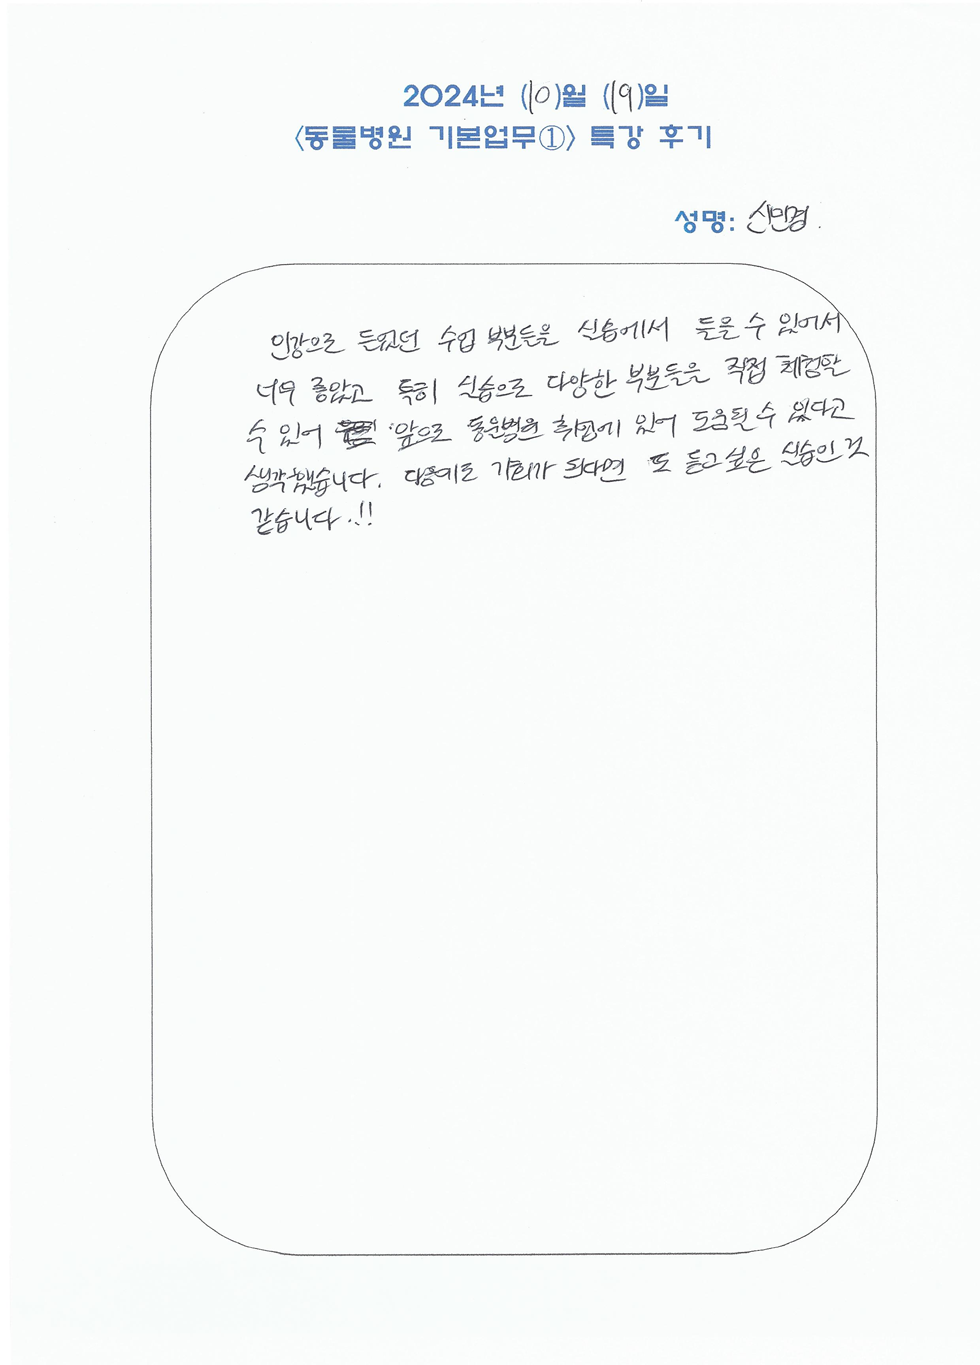 2024년 (10)월 (19)일
<동물병원 기본업무①> 특강 후기
성명: 신민경.
인강으로 들었던 수업 부분들을 실습에서 들을 수 있어서
너무 좋았고 특히 실습으로 다양한 부분들을 직접 체험할
수 있어 앞으로 동물병원 취업에 있어 도움될 수 있다고
생각했습니다. 다음에도 기회가 된다면 또 듣고 싶은 실습인 것
같습니다.!!